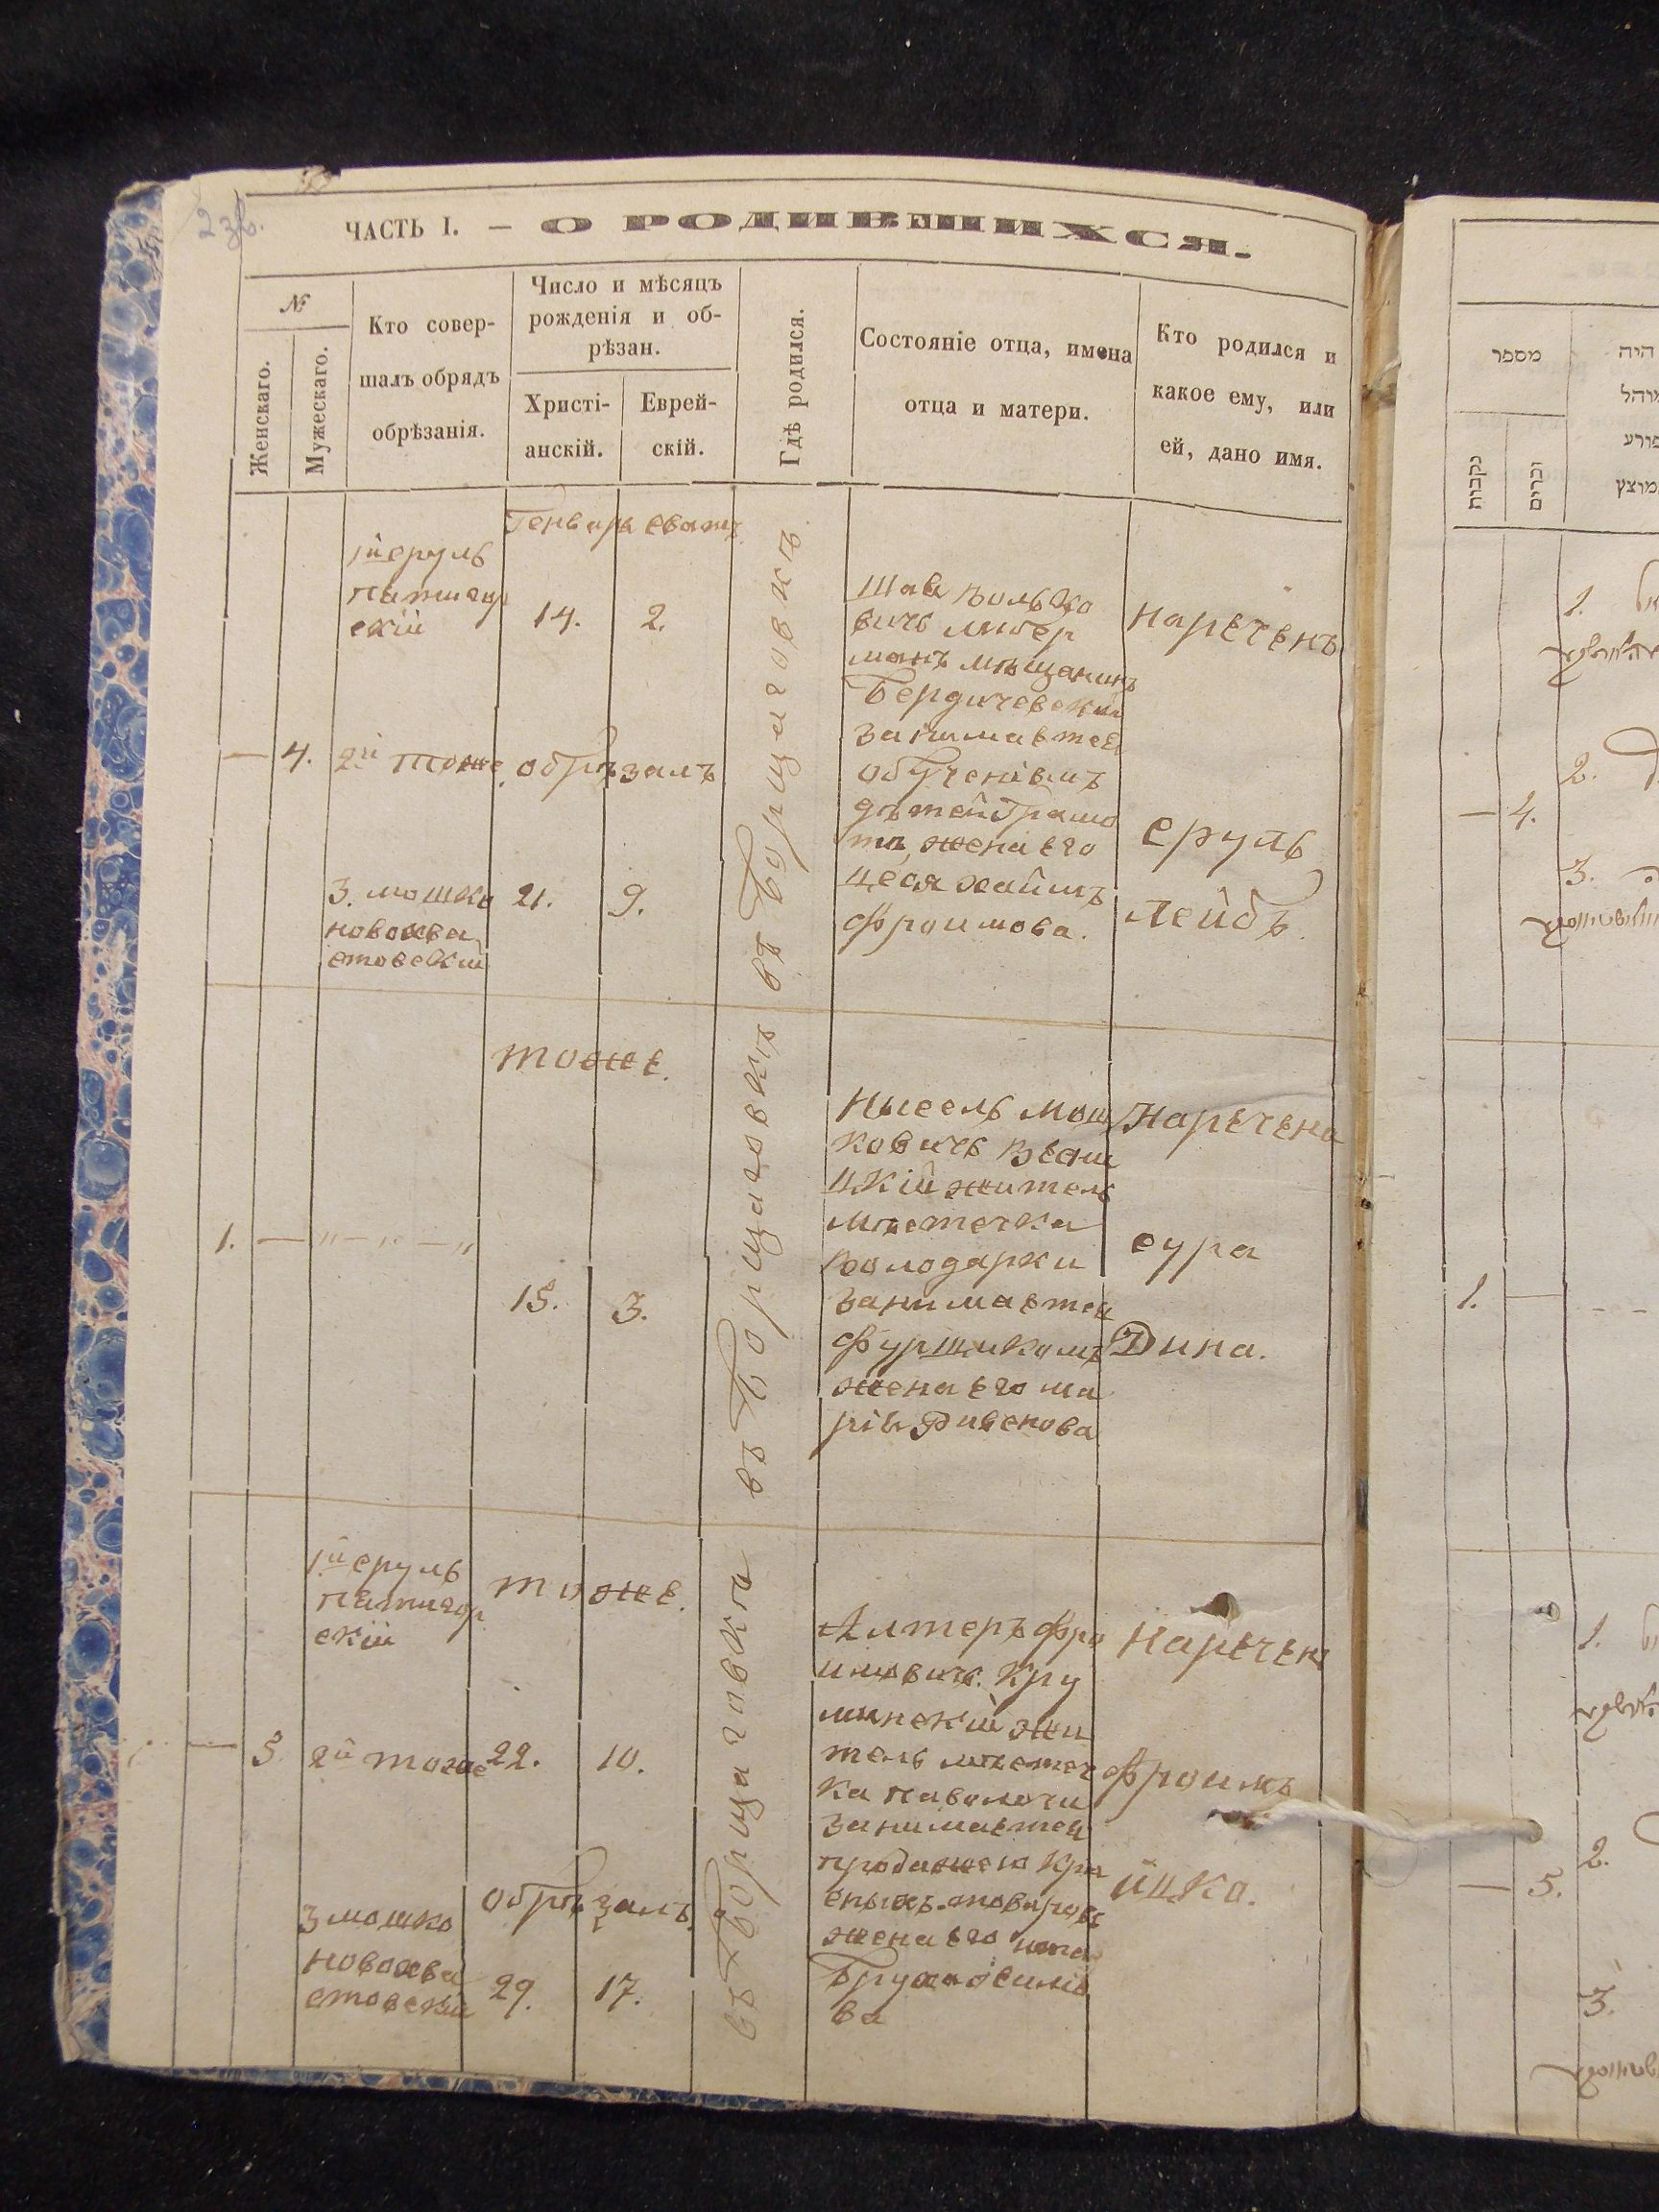 23б.
ЧАСТЬ I. — О РОДИВШИХСЯ.
№
Женскаго.
Мужескаго.
Кто совер-
шалъ обрядъ
обрѣзанія.
Число и мѣсяцъ
рожденія и об-
рѣзан.
Христі-
анскій.
Еврей-
скій.
Гдѣ родился.
Состояніе отца, имена
отца и матери.
Кто родился и
какое ему, или
ей, дано имя.
— 4.
1й сруль
пятигор
скій
2й тоже
3. мошко
новохва
стовскій
Генварь сватъ
14. 2.
обрѣзалъ
21. 9.
въ Борщаговкѣ
Шая Вольфо
вичъ либер
манъ мѣщанинъ
Бердичевскій
занимается
обученіемъ
дѣтей грамо
тѣ, жена его
цеся хаимъ
Фроимова.
нарѣченъ
сруль
Лейбъ.
1. — " — " — "
тоже.
15. 3.
въ Борщаговкѣ
Нысель Мош
ковичъ
цкій житель
мѣстечка
Володарки
занимается
Фурщикомъ
жена его ма
рія
Нарѣчена
сура
Дина.
— 5.
1й сруль
пятигор
скій
2й тоже
3 мошко
новохва
стовскій
тоже.
22. 10.
обрѣзалъ.
29. 17.
въ Борщаговкѣ
Алтеръ Фро
имовичъ. Кру
шинскій жи
тель мѣстеч
ка паволочи
занимается
продажею кра
сныхъ товаровъ
жена его
Нарѣчен
Фроимъ
ицко.
מספר
נקבות
זכרים
היה
מוהל
פורע
מוצץ
— 4.
1.
2.
3.
1. —
— 5.
1.
2.
3.